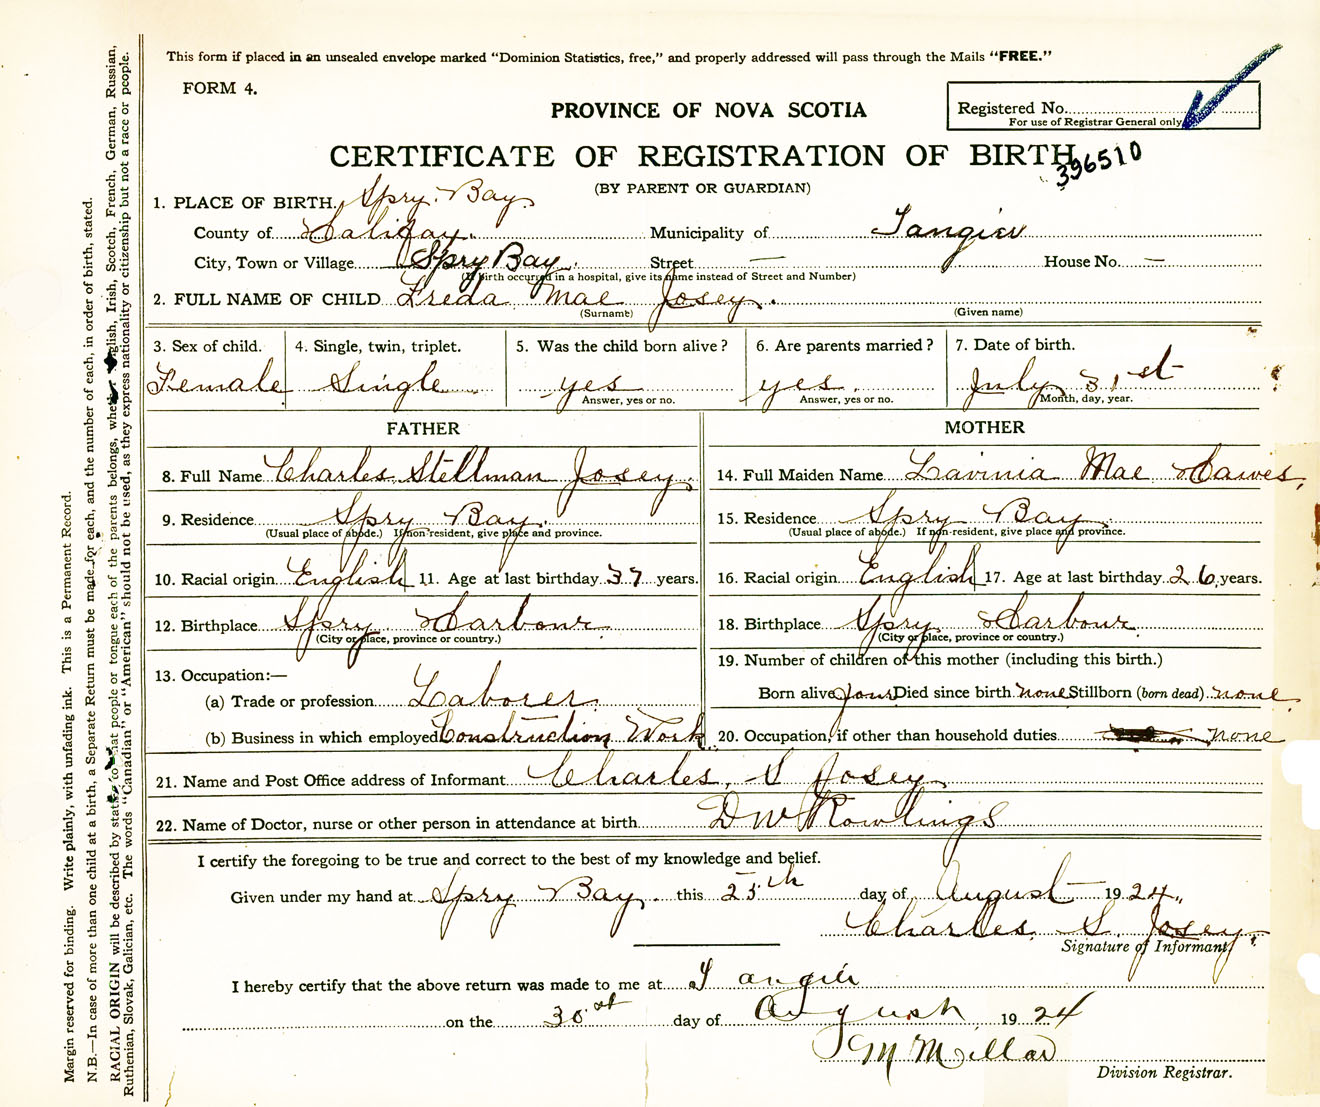 This form if placed in an unsealed envelope marked “Dominion Statistics, free,” and properly addressed will pass through the Mails “FREE.”
FORM 4.
PROVINCE OF NOVA SCOTIA
Registered No.
For use of Registrar General only
CERTIFICATE OF REGISTRATION OF BIRTH
396510
(BY PARENT OR GUARDIAN)
1. PLACE OF BIRTH. Spry Bay
County of Halifax. Municipality of Tangier
City, Town or Village Spry Bay. Street — House No. —
(If birth occurred in a hospital, give its name instead of Street and Number)
2. FULL NAME OF CHILD Freda Mae Josey.
(Surname) (Given name)
3. Sex of child. 4. Single, twin, triplet. 5. Was the child born alive? 6. Are parents married? 7. Date of birth.
Female Single yes yes. July 31st
Answer, yes or no. Answer, yes or no. Month, day, year.
FATHER MOTHER
8. Full Name Charles Stellman Josey. 14. Full Maiden Name Lavinia Mae Hawes.
9. Residence Spry Bay. 15. Residence Spry Bay.
(Usual place of abode.) If non-resident, give place and province. (Usual place of abode.) If non-resident, give place and province.
10. Racial origin English 11. Age at last birthday 37 years. 16. Racial origin English 17. Age at last birthday 26 years.
12. Birthplace Spry Harbour. 18. Birthplace Spry Harbour.
(City or place, province or country.) (City or place, province or country.)
13. Occupation:— 19. Number of children of this mother (including this birth.)
(a) Trade or profession Laborer. Born alive four Died since birth none Stillborn (born dead) none
(b) Business in which employed Construction Work. 20. Occupation, if other than household duties none
21. Name and Post Office address of Informant Charles S Josey
22. Name of Doctor, nurse or other person in attendance at birth D W Rowlings
I certify the foregoing to be true and correct to the best of my knowledge and belief.
Given under my hand at Spry Bay. this 25th day of August 1924.
Charles S. Josey.
Signature of Informant
I hereby certify that the above return was made to me at Tangier
on the 30st day of August 1924
M McMillar
Division Registrar.
Margin reserved for binding. Write plainly, with unfading ink. This is a Permanent Record.
N.B.—In case of more than one child at a birth, a Separate Return must be made for each, and the number of each, in order of birth, stated.
RACIAL ORIGIN will be described by stating to what people or tongue each of the parents belongs, whether English, Irish, Scotch, French, German, Russian,
Ruthenian, Slovak, Galician, etc. The words “Canadian” or “American” should not be used, as they express nationality or citizenship but not a race or people.